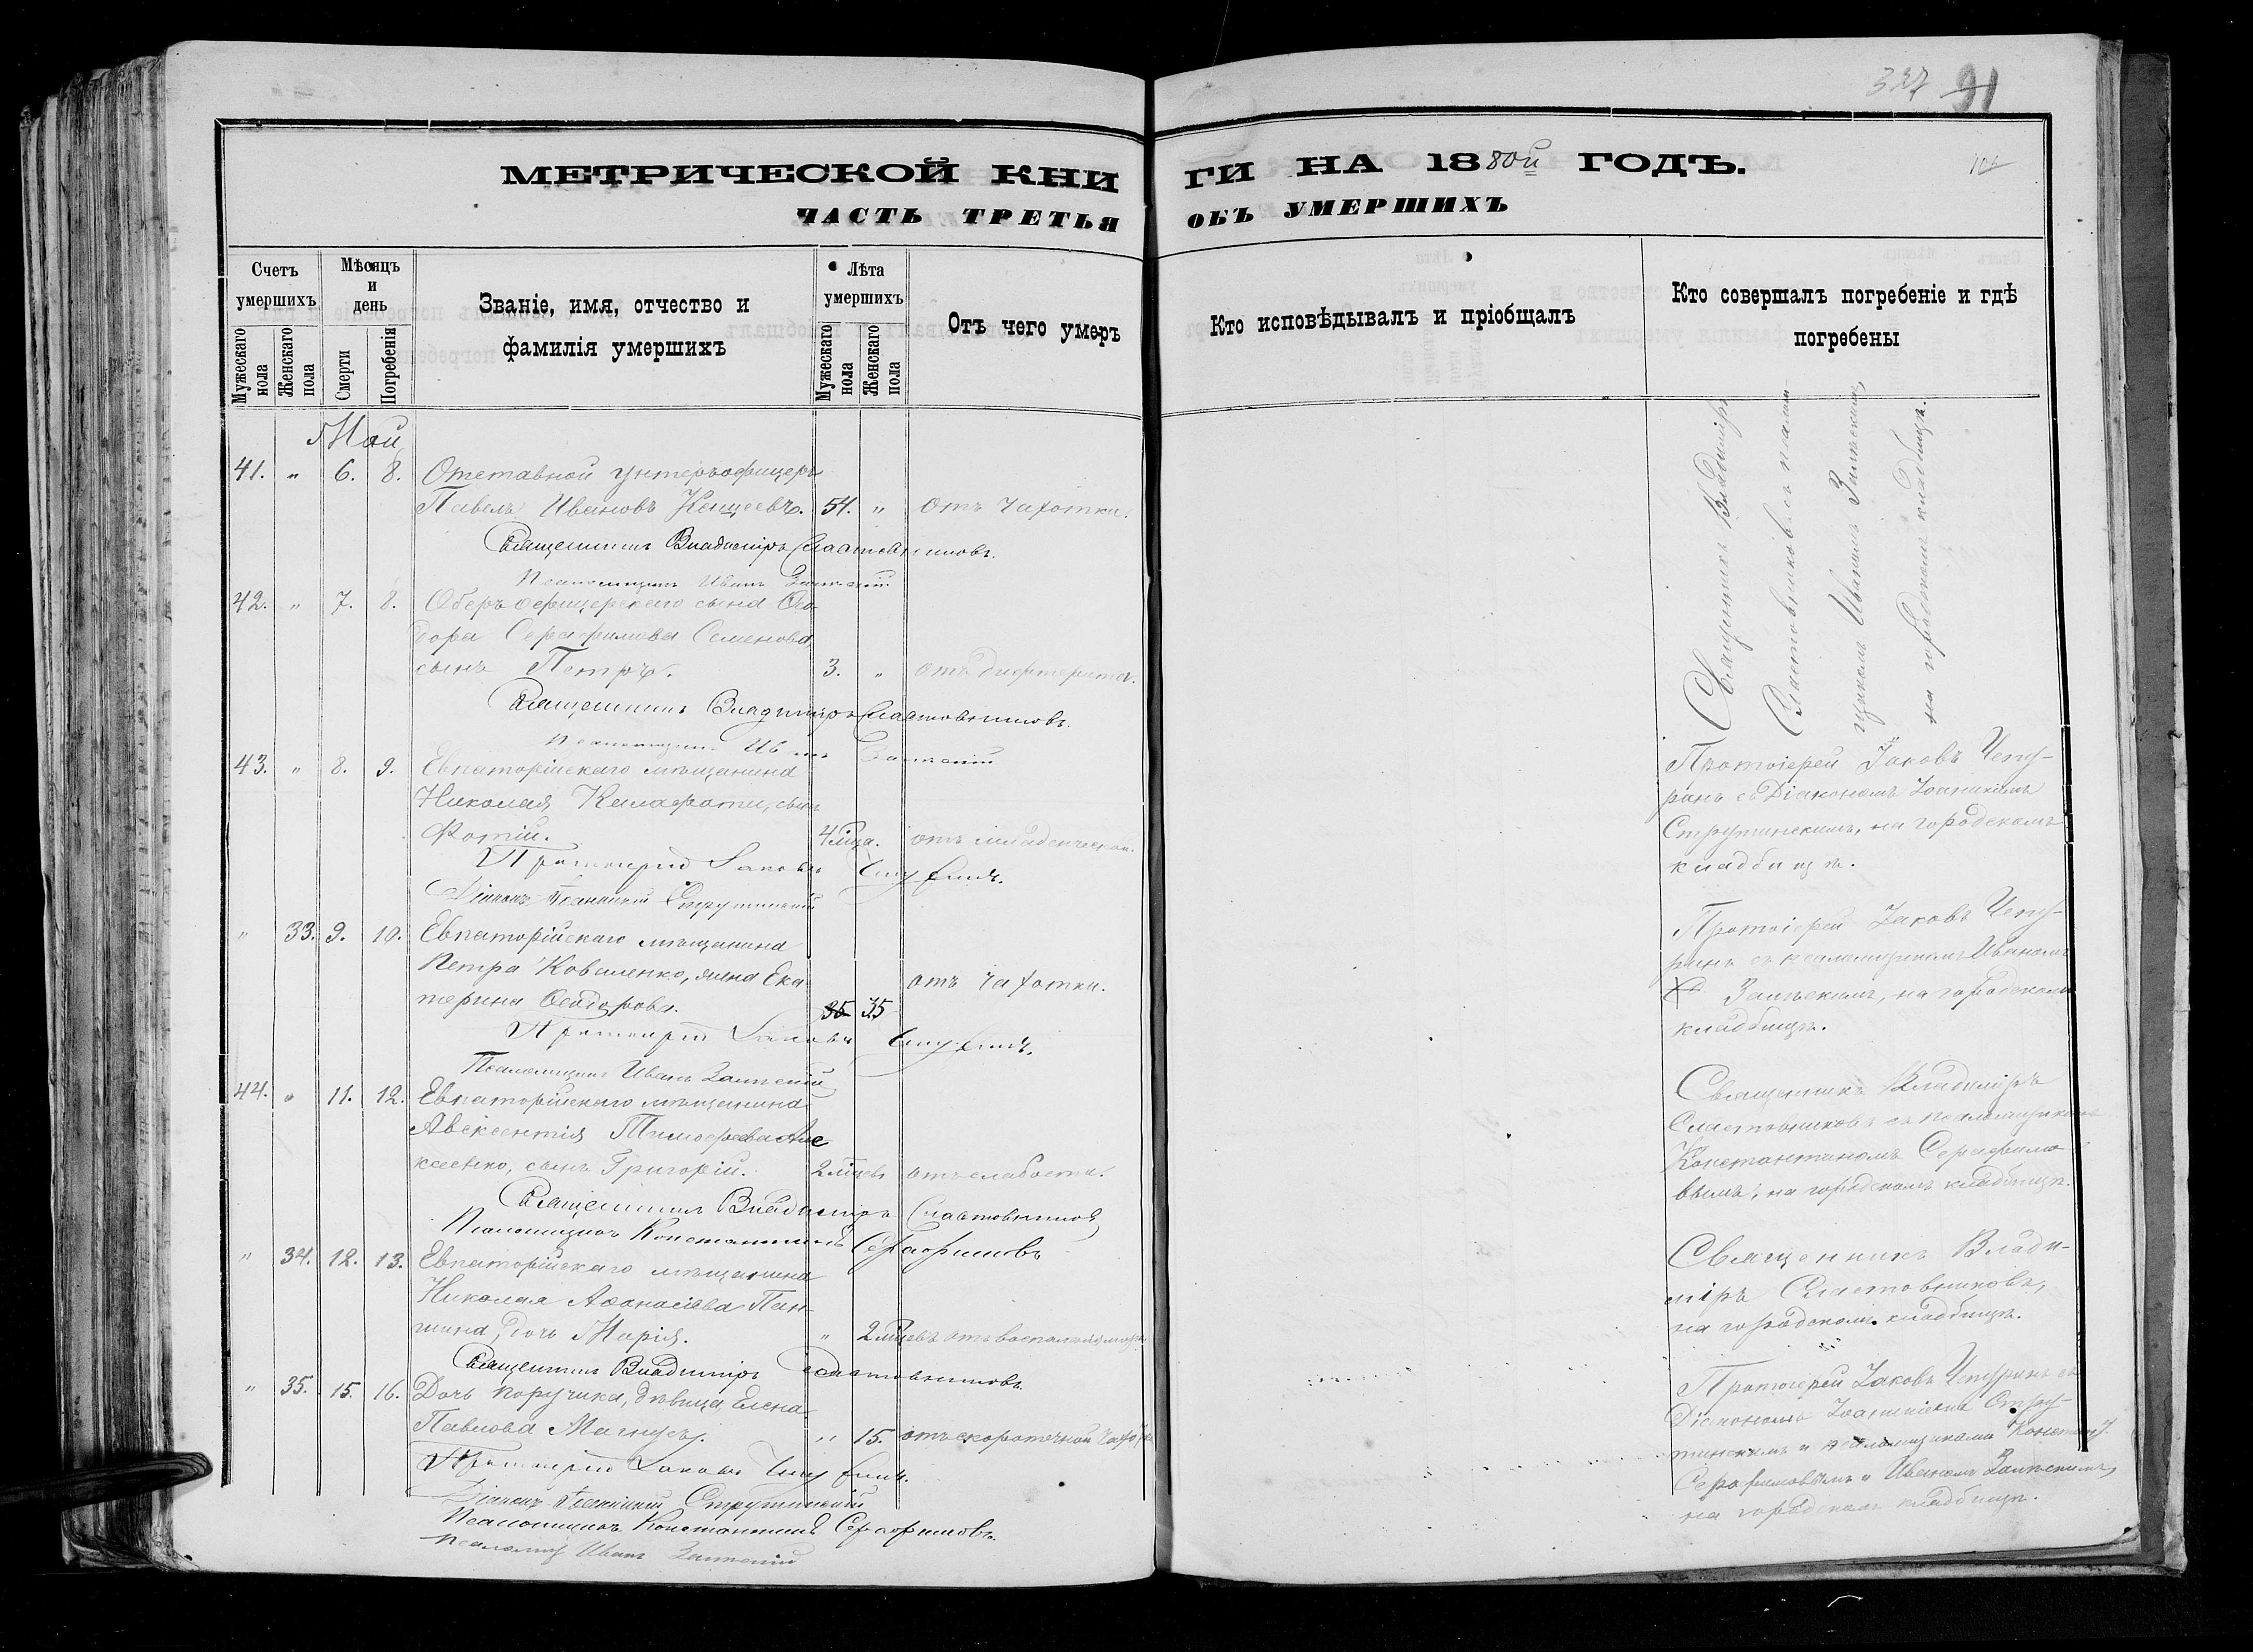 337 91
МЕТРИЧЕСКОЙ КНИ
ЧАСТЬ ТРЕТЬЯ
Счетъ умершихъ
Мужескаго пола
Женскаго пола
Мѣсяцъ и день
Смерти
Погребенія
Званіе, имя, отчество и
фамилія умершихъ
Лѣта умершихъ
Мужескаго пола
Женскаго пола
Отъ чего умеръ
Май
41. " 6. 8. Отставной унтеръофицеръ
Павелъ Ивановъ 54. " отъ чахотки.
Священникъ Владиміръ Сластовниковъ.
Псаломщикъ Иванъ
42. " 7. 8. Оберъ офицерскаго сына Ѳео-
дора Серафимова Семенова,
сынъ Петръ. 3. " отъ дифтерита.
Священникъ Владиміръ Сластовниковъ.
Псаломщикъ Иванъ
43. " 8. 9. Евпаторійскаго мѣщанина
Николая Калафати, сынъ
Фотій. 4 мѣца. отъ младенческой.
Протоіерей Іаковъ Чепуринъ.
Діаконъ Іоанникій Струтинскій
" 33. 9. 10. Евпаторійскаго мѣщанина
Петра Коваленко, жена Ека-
терина Ѳеодорова. 35 35 отъ чахотки.
Протоіерей Іаковъ Чепуринъ.
Псаломщикъ Иванъ
44. " 11. 12. Евпаторійскаго мѣщанина
Авксентія Тимофеева Але
ксеенко, сынъ Григорій. 2 мѣцевъ отъ слабости.
Священникъ Владиміръ Сластовниковъ
Псаломщикъ Константинъ Серафимовъ
" 34. 12. 13. Евпаторійскаго мѣщанина
Николая Аѳанасіева Пан-
шина, дочь Марія. " 2 мѣцевъ отъ воспаленія
Священникъ Владиміръ Сластовниковъ.
" 35. 15. 16. Дочь поручика, дѣвица Елена
Павлова " 15. отъ скоротечной чахотки
Протоіерей Іаковъ Чепуринъ.
Діаконъ Іоанникій Струтинскій
Псаломщикъ Константинъ Серафимовъ.
Иванъ
ГИ НА 1880й ГОДЪ.
ОБЪ УМЕРШИХЪ
Кто исповѣдывалъ и пріобщалъ
Кто совершалъ погребеніе и гдѣ
погребены
Священникъ Владиміръ
Сластовниковъ съ псалом-
щикомъ Иваномъ
на городскомъ кладбищѣ.
Протоіерей Іаковъ Чепу-
ринъ съ Діакономъ Іоанникіемъ
Струтинскимъ, на городскомъ
кладбищѣ.
Протоіерей Іаковъ Чепу-
ринъ съ псаломщикомъ Иваномъ
на городскомъ
кладбищѣ.
Священникъ Владиміръ
Сластовниковъ съ псаломщикомъ
Константиномъ Серафимо
вымъ, на городскомъ кладбищѣ.
Священникъ Влади-
міръ Сластовниковъ,
на городскомъ кладбищѣ.
Протоіерей Іаковъ Чепуринъ съ
Діакономъ Іоанникіемъ Стру-
тинскимъ и псаломщиками Констант.
Серафимовымъ и Иваномъ
на городскомъ кладбищѣ.